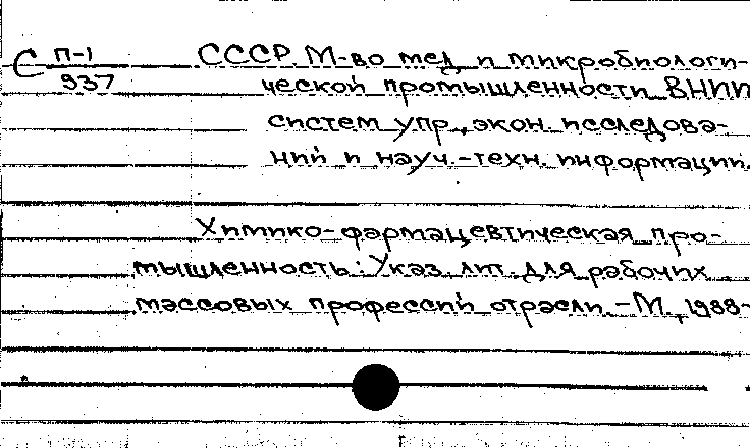 С П-1
937
СССР. М-во мед. и микробиологи-
ческой промышленности. ВНИИ
систем упр., экон. исследова-
ний и науч.-техн. информации.
Химико-фармацевтическая про-
мышленность: Указ. лит. для рабочих
массовых профессий отрасли. - М., 1988-